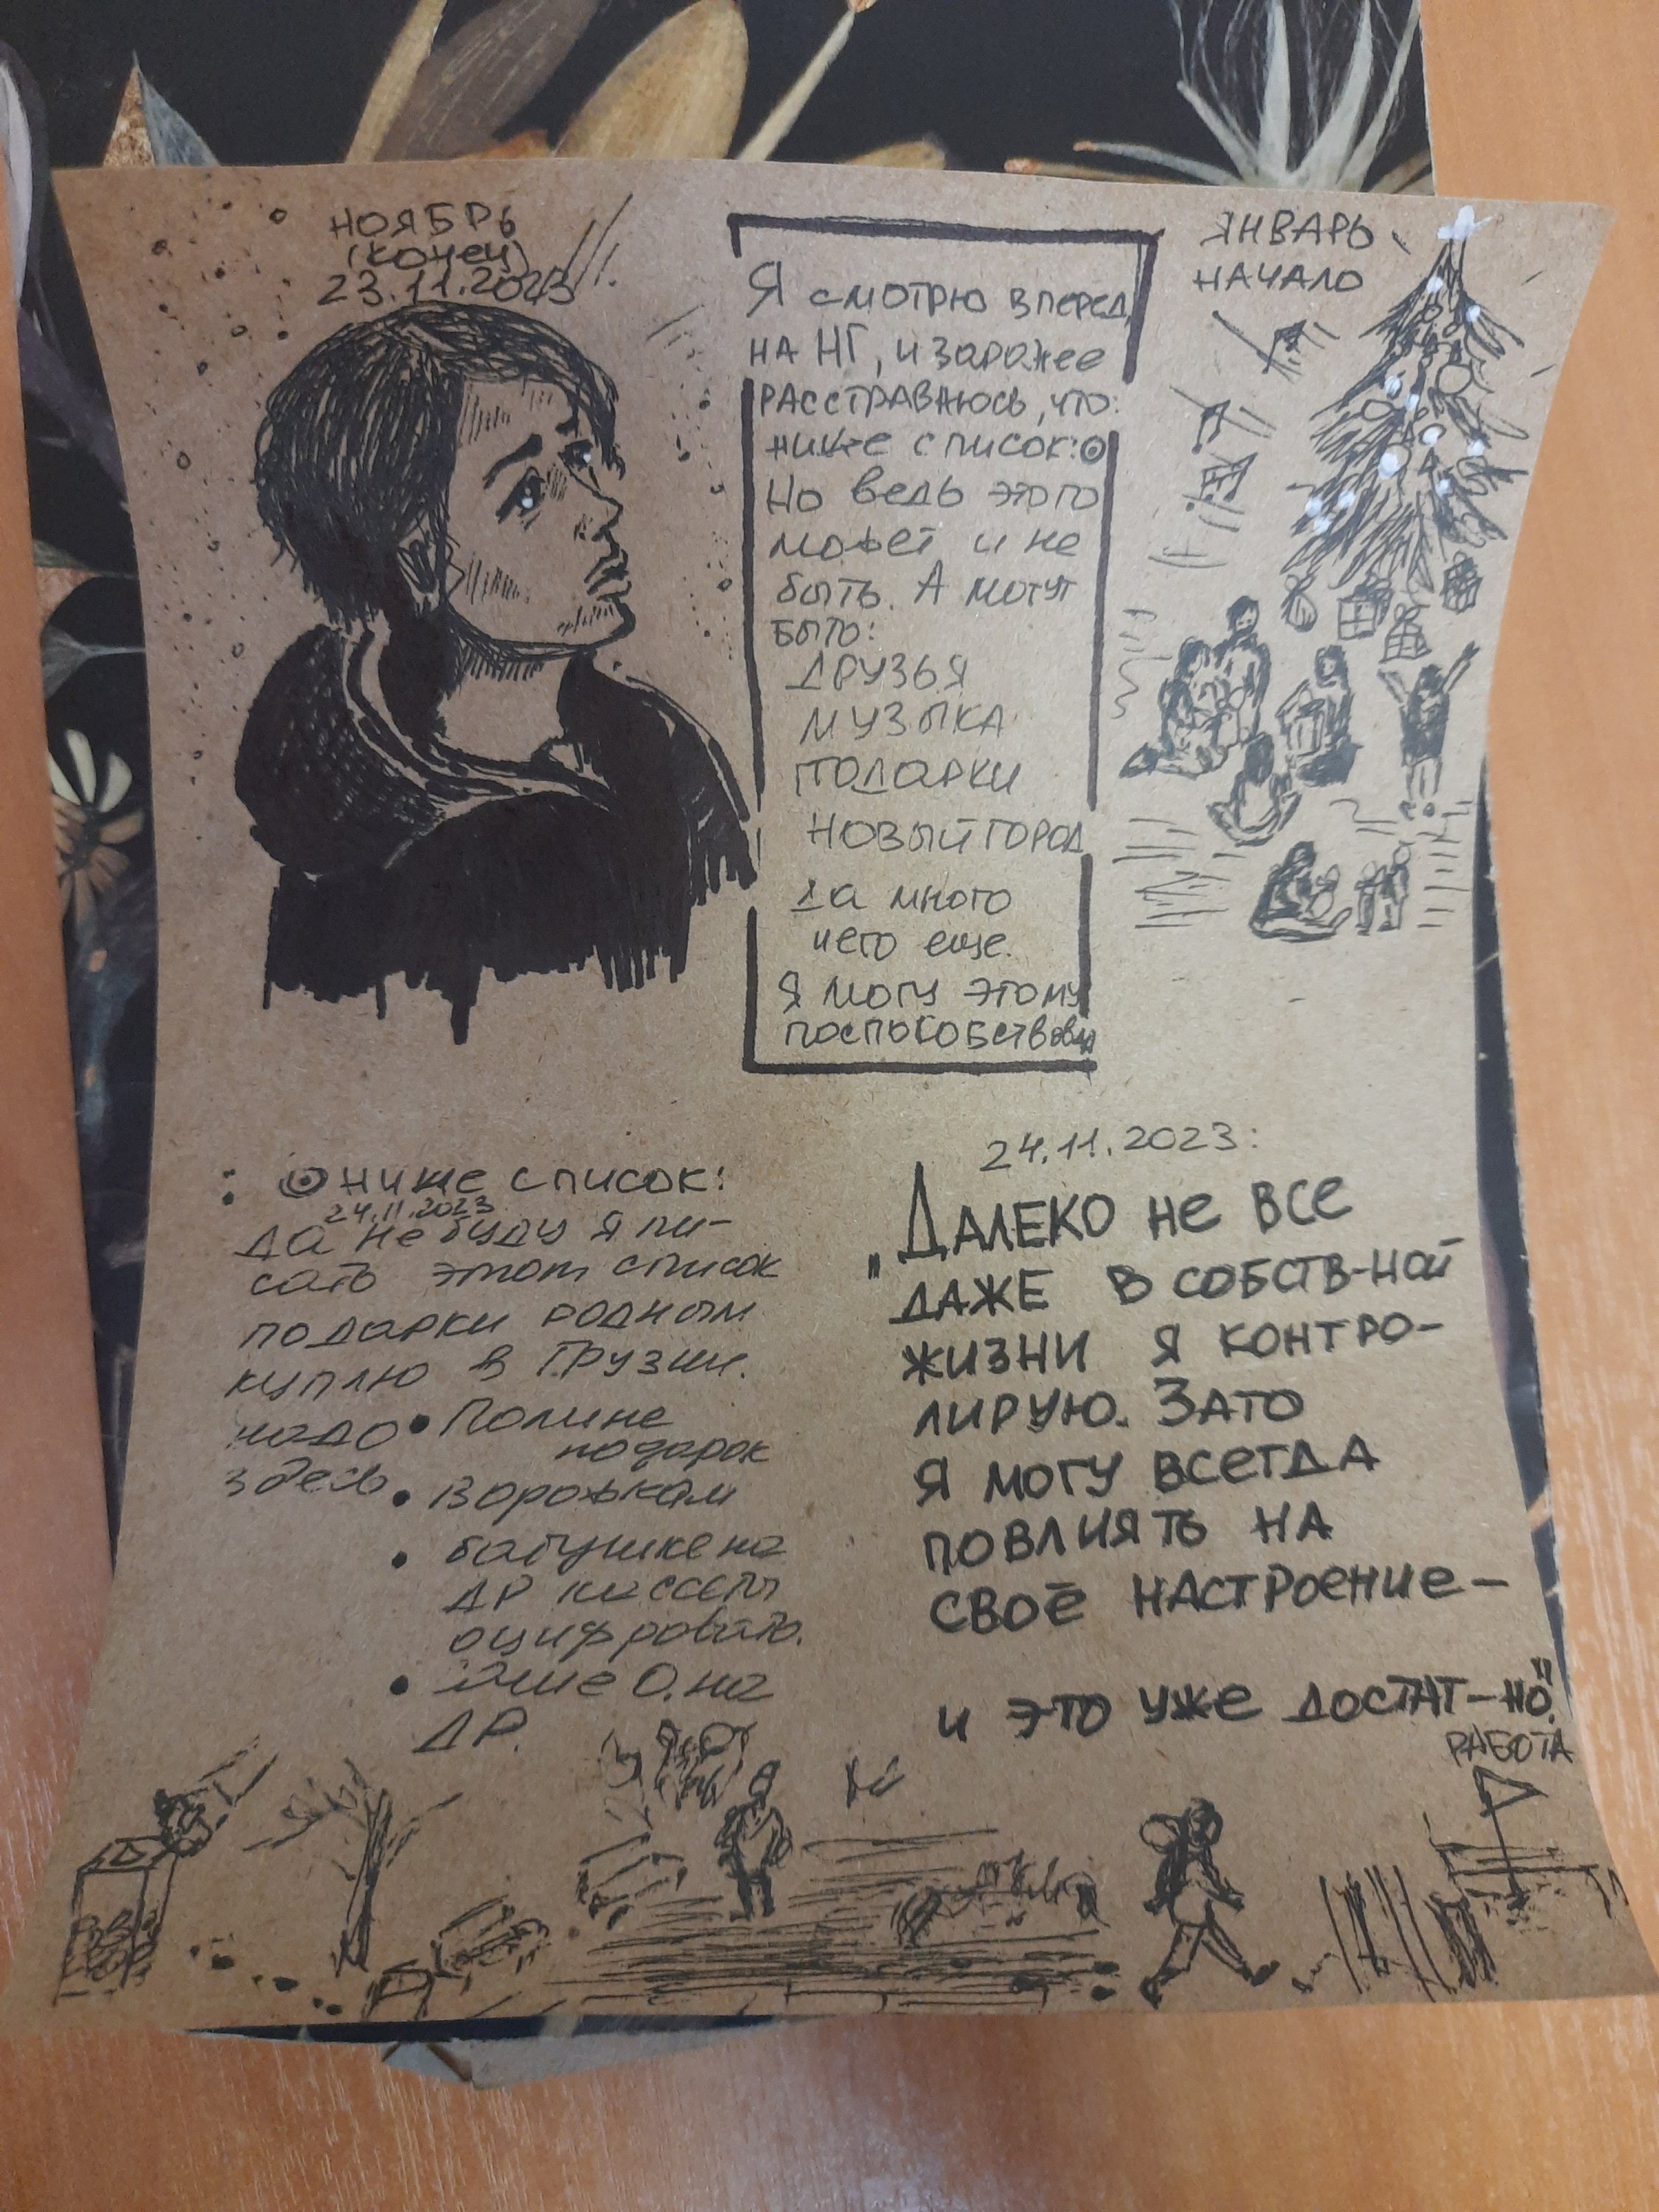 НОЯБРЬ
(конец)
23.11.2023
Я смотрю вперед,
на НГ, и заранее
расстраиваюсь, что:
ниже список:
Но ведь этого
может и не
быть. А могут
быть:
ДРУЗЬЯ
МУЗЫКА
ПОДАРКИ
НОВЫЙ ГОРОД
да много
чего еще.
Я могу этому
поспособствовать
ЯНВАРЬ
НАЧАЛО
ниже список:
24.11.2023
да не буду я пи-
сать этот список
подарки родным
куплю в Грузии.
надо
здесь
• Полине
подарок
• Ворожкам
• бабушке на
ДР кассеты
оцифровать.
• О. на
ДР.
24.11.2023:
„ДАЛЕКО НЕ ВСЕ
ДАЖЕ В СОБСТВ-НОЙ
ЖИЗНИ Я КОНТРО-
ЛИРУЮ. ЗАТО
Я МОГУ ВСЕГДА
ПОВЛИЯТЬ НА
СВОЁ НАСТРОЕНИЕ –
И ЭТО УЖЕ ДОСТАТ-НО".
РАБОТА